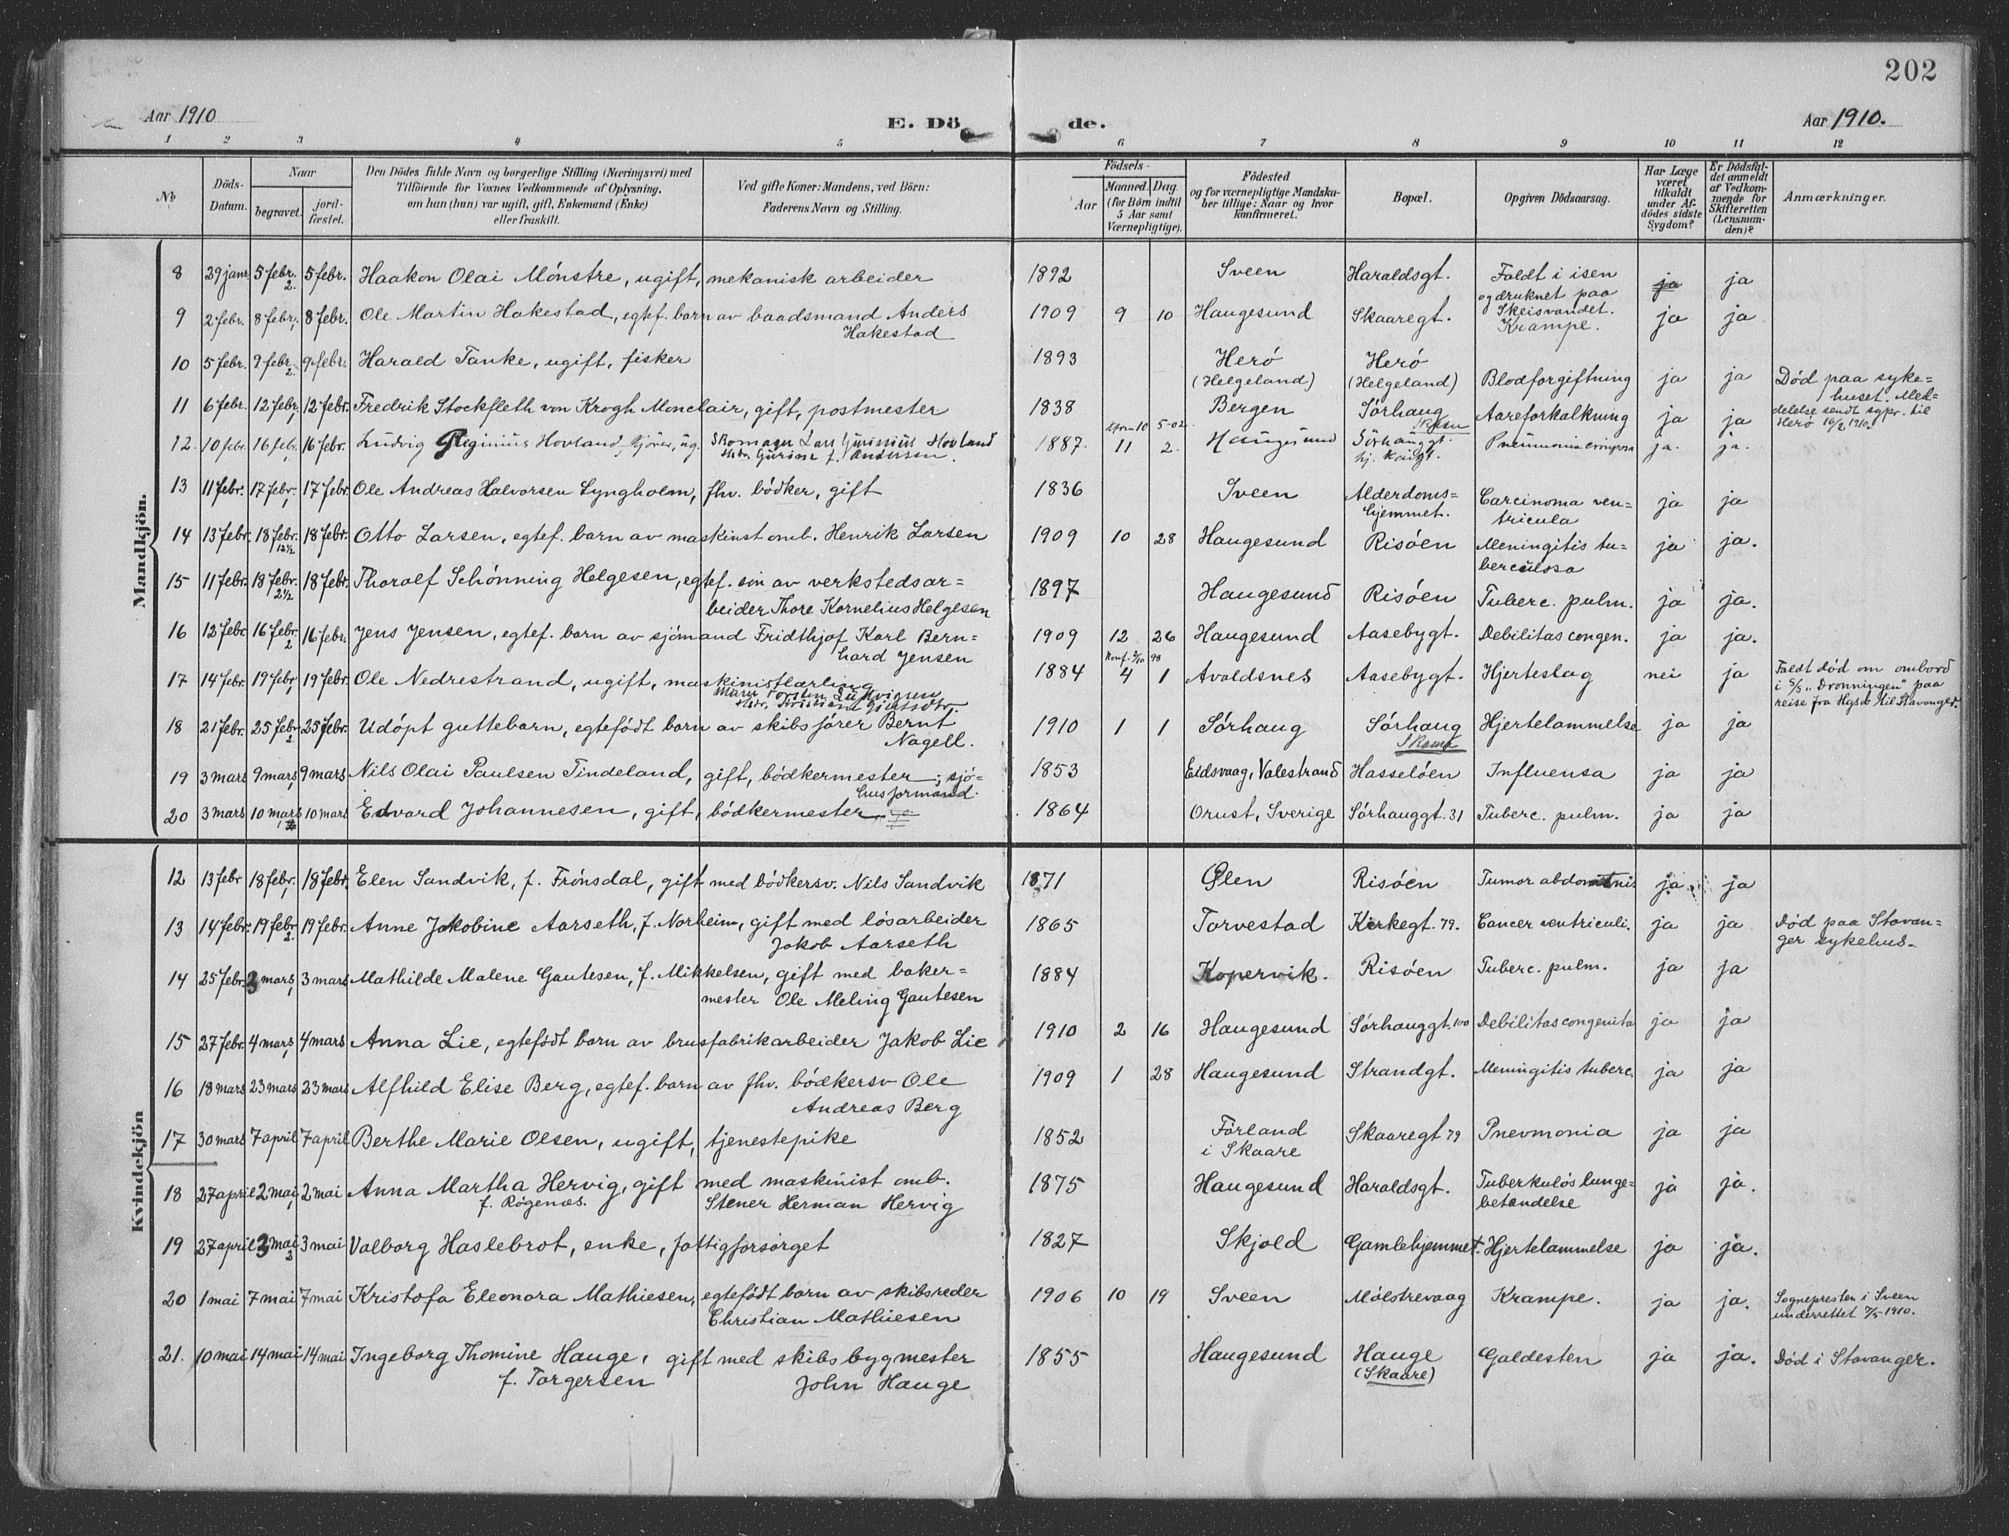 202
Aar 1910 E. Dö de. Aar 1910.
1 2 3 4 5 6 7 8 9 10 11 12
№
Döds-Datum.
Naar
begravet.
jordfæstet.
Den Dödes fulde Navn og borgerlige Stilling (Næringsvei) med
Tilföiende for Voxnes Vedkommende af Oplysning,
om han (hun) var ugift, gift, Enkemand (Enke)
eller fraskilt.
Ved gifte Koner: Mandens, ved Börn:
Faderens Navn og Stilling.
Födsels-
Aar
Maaned. Dag.
(for Börn indtil
5 Aar samt
Værnepligtige).
Födested
og for værnepligtige Mandska-
ber tillige: Naar og hvor
konfirmeret.
Bopæl.
Opgiven Dödsaarsag.
Har Læge
været
tilkaldt
under Af-
dödes sidste
Sygdom?
Er Dödsfal-
det anmeldt
af Vedkom-
mende for
Skifteretten
(Lensman-
den)?
Anmærkninger.
Mandkjön.
8 29 janr 5 febr. 2 5 febr. Haakon Olai Mönstre, ugift, mekanisk arbeider 1892 Sveen Haraldsgt. Faldt i isen ja ja
og druknet paa
Skeisvandet.
9 2 febr. 8 febr. 8 febr. Ole Martin Hakestad, egtef. barn av baadsmand Anders 1909 9 10 Haugesund Skaaregt. Krampe. ja ja
Hakestad
10 5 febr. 9 febr. 2 9 febr. Harald Tanke, ugift, fisker 1893 Herö Herö Blodforgiftning ja ja Död paa syke-
(Helgeland) (Helgeland) huset. Med-
delelse sendt sypr. til
Herö 16/2 1910.
11 6 febr. 12 febr. 12 febr. Fredrik Stockfleth von Krogh Monclair, gift, postmester 1838 Bergen Sörhaug Aareforkalkning ja ja
12. 10 febr. 16 febr. 16 febr. Ludvig Hovland, ug. Skomager Lars Hovland 1887. 11 2. Haugesund Sörhauggt. Pneumonia ja. ja.
13 11 febr. 17 febr. 17 febr. Ole Andreas Halvorsen Lyngholm, fhv. bödker, gift 1836 Sveen Alderdoms= Carcinoma ven- ja ja
hjemmet. tricula
14 13 febr. 18 febr. 12½ 18 febr. Otto Larsen, egtef. barn av maskinist omb. Henrik Larsen 1909 10 28 Haugesund Risöen Meningitis tu= ja ja.
berculosa
15 11 febr. 18 febr. 2½ 18 febr. Thoralf Schönning Helgesen, egtef. sön av verkstedsar= 1897 Haugesund Risöen Tuberc. pulm. ja ja.
beider Thore Kornelius Helgesen
16 12 febr. 16 febr. 2 16 febr. Jens Jensen, egtef. barn av sjömand Fridthjof Karl Bern- 1909 12 26 Haugesund Aasebygt. Debilitas congen. ja ja.
hard Jensen
17 14 febr. 19 febr. 19 febr. Ole Nedrestrand, ugift, maskinistlærling 1884 4 1 Avaldsnes Aasebygt. Hjerteslag nei ja Faldt död om ombord
i S/S „Dronningen" paa
reise fra Hgsd til Stavanger.
18 21 febr. 25 febr. 2 25 febr. Udöpt guttebarn, egtefödt barn av skibsförer Bernt 1910 1 1 Sörhaug Sörhaug Hjertelammelse ja ja
Nagell. Skaare
19 3 mars 9 mars 9 mars Nils Olai Paulsen Tindeland, gift, bödkermester, sjö= 1853 Eidsvaag, Valestrand Hasselöen Influensa ja ja
husformand.
20 3 mars 10 mars 10 mars Edvard Johannesen, gift, bödkermester 1864 Orust, Sverige Sörhauggt. 31 Tuberc. pulm. ja ja
Kvindekjön
12 13 febr 18 febr. 18 febr. Elen Sandvik, f. Frönsdal, gift med bödkersv. Nils Sandvik 1871 Ølen Risöen Tumor abdominis ja ja
13 14 febr. 19 febr. 2. 19 febr. Anne Jakobine Aarseth, f. Norheim, gift med lösarbeider 1865 Torvestad Kirkegt. 79. Cancer ventriculi. ja ja Död paa Stavan-
Jakob Aarseth ger sykehus.
14 25 febr. 3 mars 3 mars Mathilde Malene Gautesen, f. Mikkelsen, gift med baker= 1884 Kopervik. Risöen Tuberc. pulm. ja ja
mester Ole Meling Gautesen
15 27 febr. 4 mars 4 mars Anna Lie, egtefödt barn av brusfabrikarbeider Jakob Lie 1910 2 16 Haugesund Sörhauggt. 100 Debilitas congenita ja ja
16 18 mars 23 mars 23 mars Alfhild Elise Berg, egtef. barn av fhv. bödkersv Ole 1909 1 28 Haugesund Strandgt. Meningitis tuberc. ja ja
Andreas Berg
17 30 mars 7 april 7 april Berthe Marie Olsen, ugift, tjenestepike 1852 Förland Skaaregt 79 Pnevmonia ja ja
i Skaare
18 27 april 2 mai 2 mai Anna Martha Hervig, gift med maskinist omb. 1875 Haugesund Haraldsgt. Tuberkulös lunge- ja ja.
f. Rögenæs. Stener Herman Hervig betendelse
19 27 april 3 mai 3 3 mai Valborg Haslebrot, enke, fattigforsörget 1827 Skjold Gamlehjemmet. Hjertelammelse ja ja.
20 1 mai 7 mai 7 mai Kristofa Eleonora Mathiesen, egtefödt barn av skibsreder 1906 10 19 Sveen Mölstrevaag Krampe. ja ja. Sognepresten i Sveen
Christian Mathiesen underrettet 7/5 1910.
21. 10 mai 14 mai 14 mai Ingeborg Thomine Hauge, gift med skibsbygmester 1855 Haugesund Hauge Galdesten ja ja. Död i Stavanger.
f. Torgersen John Hauge (Skaare)